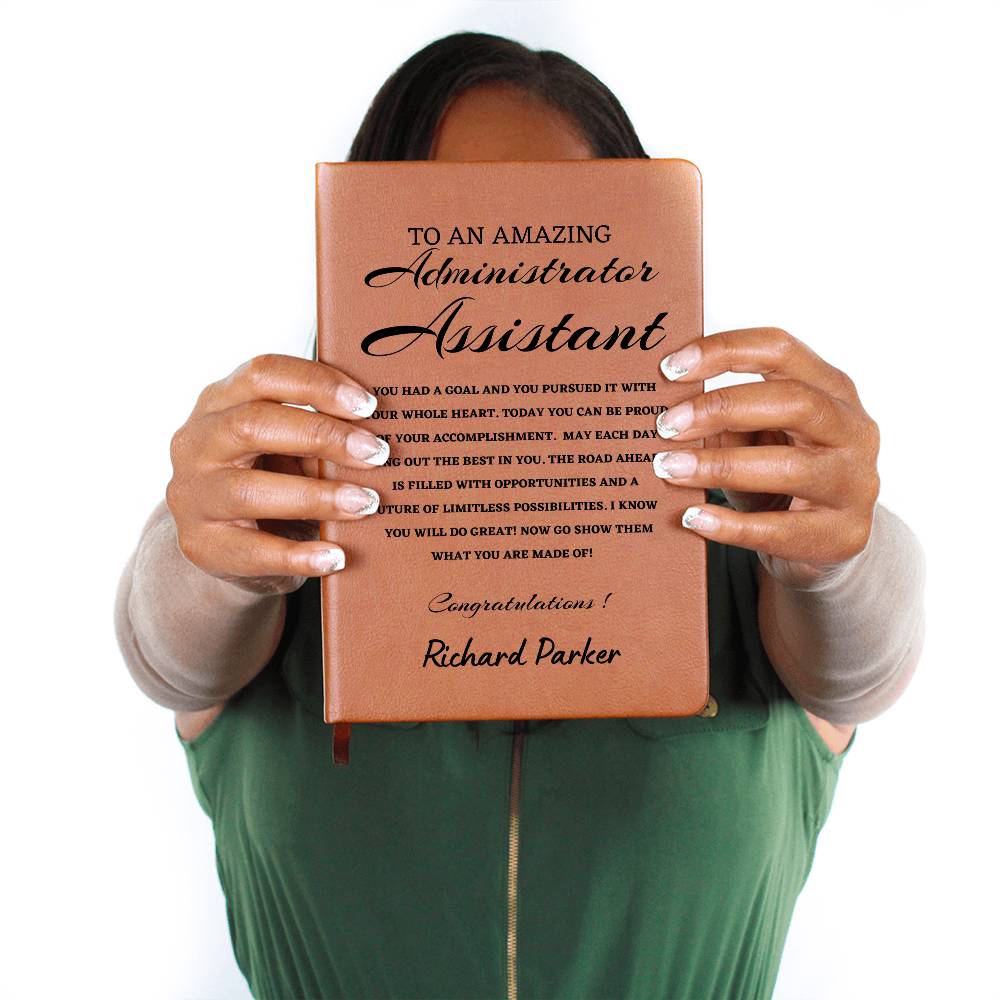 TO AN AMAZING
Administrator
Assistant
YOU HAD A GOAL AND YOU PURSUED IT WITH
YOUR WHOLE HEART. TODAY YOU CAN BE PROUD
OF YOUR ACCOMPLISHMENT. MAY EACH DAY
OUT THE BEST IN YOU. THE ROAD AHEAD
IS FILLED WITH OPPORTUNITIES AND A
FUTURE OF LIMITLESS POSSIBILITIES. I KNOW
YOU WILL DO GREAT! NOW GO SHOW THEM
WHAT YOU ARE MADE OF!
Congratulations !
Richard Parker